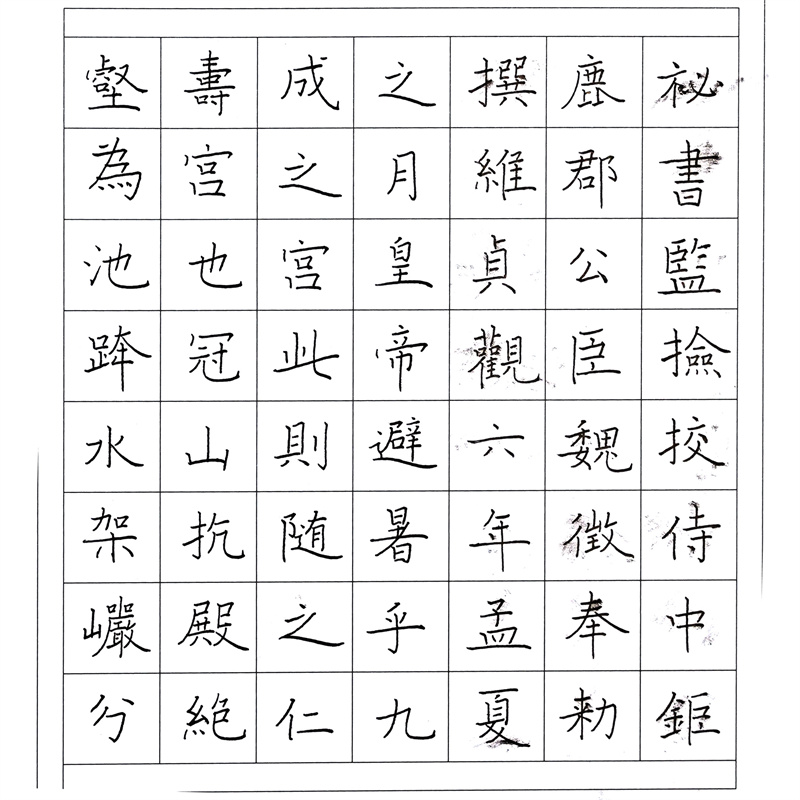 祕書監撿挍侍中鉅
鹿郡公臣魏徵奉勑
撰維貞觀六年孟夏
之月皇帝避暑乎九
成之宮此則随之仁
壽宮也冠山抗殿絶
壑為池跨水架巗分